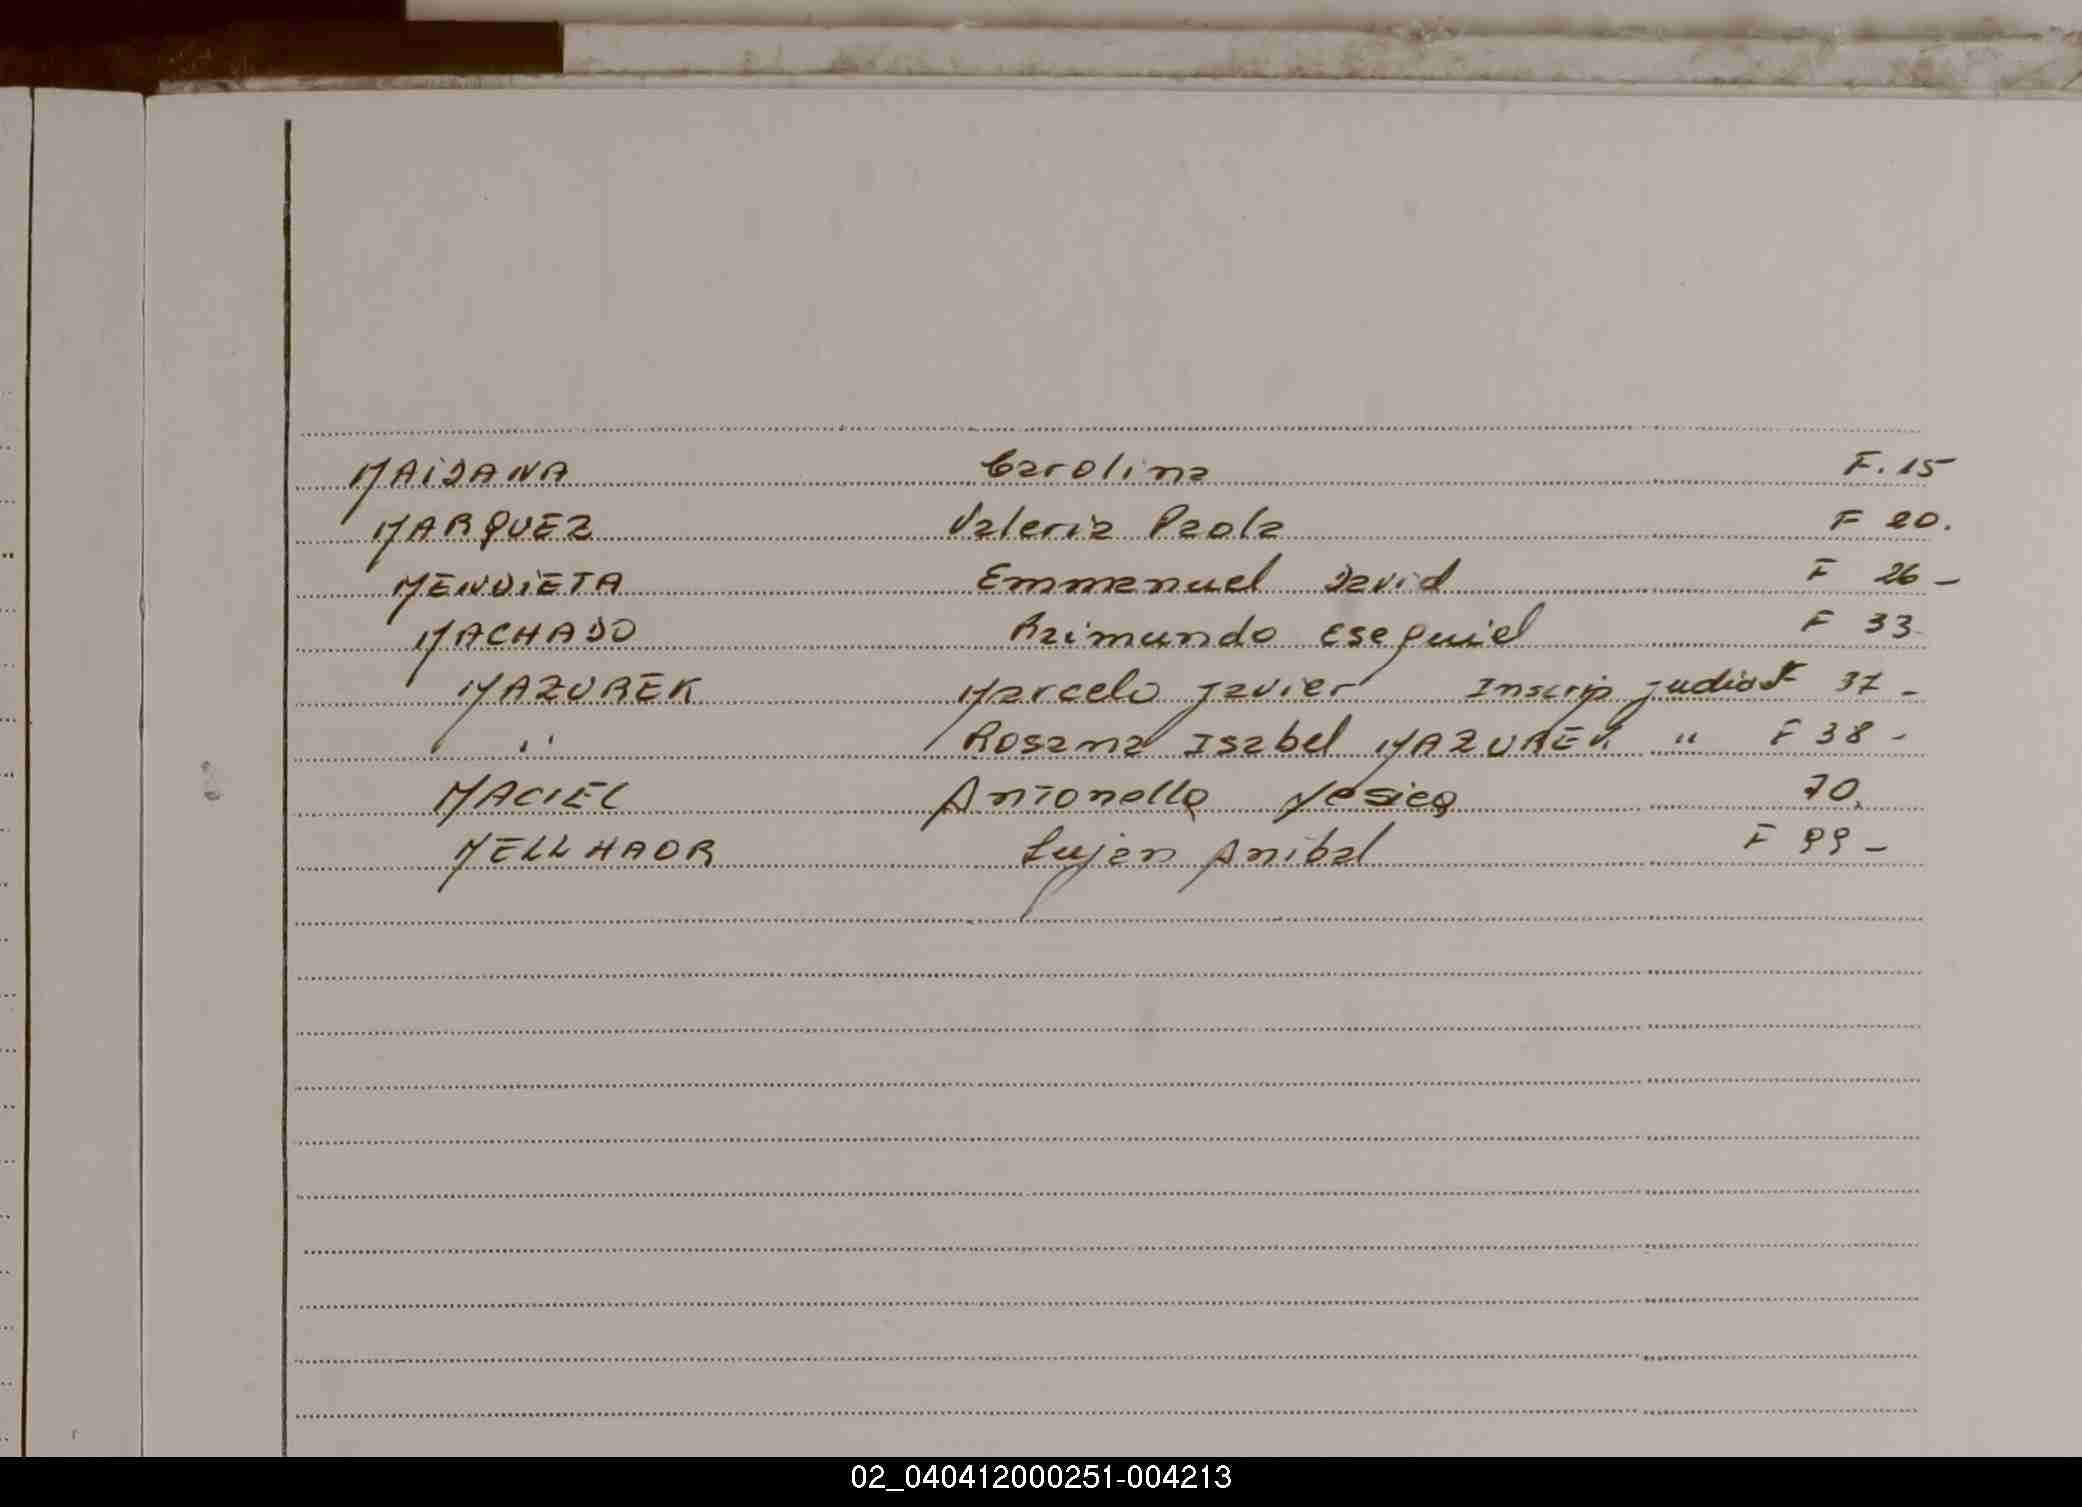 MAIDANA Carolina F. 15
MARQUEZ Valeria Paola F 20.
MENDIETA Emmanuel David F 26 -
MACHADO Raimundo Esequiel F 33
MAZUREK Marcelo Javier Inscrip judia F 37 -
" Rosana Isabel MAZUREK " F 38 -
MACIEL Antonella Yesica 70.
MELLHAOR Lujan Anibal F 99 -
02_040412000251-004213